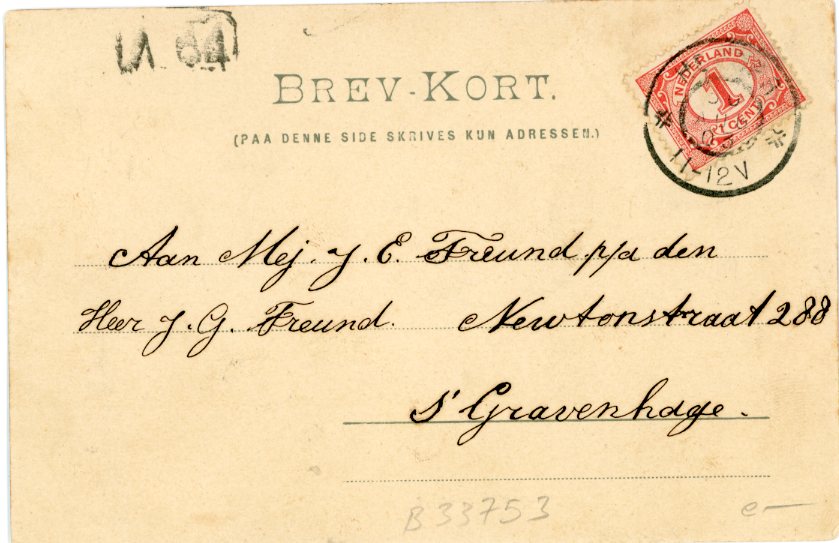 64
BREV-KORT.
(PAA DENNE SIDE SKRIVES KUN ADRESSEN.)
NEDERLAND
1
1 CENT
11-12V
Aan Mej. J. E. Freund p/a den
Heer J. G. Freund. Newtonstraat 288
s' Gravenhage.
B 33753
e—